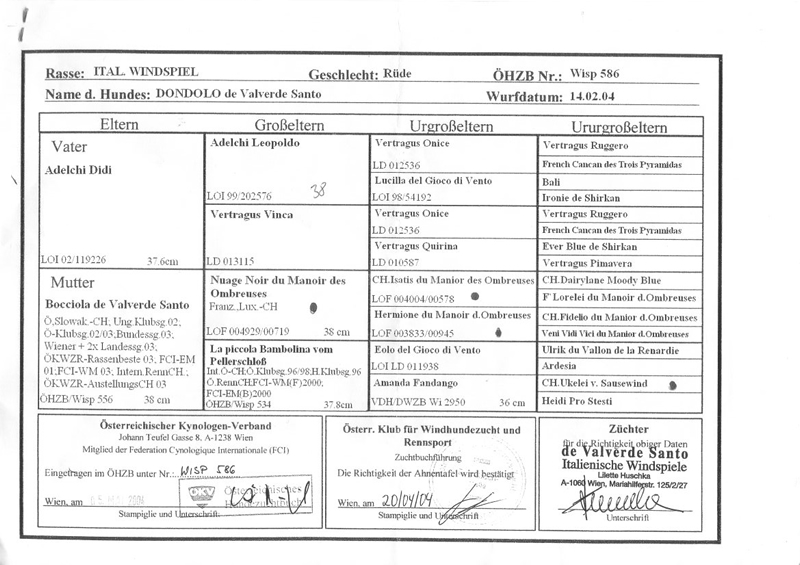 Rasse: ITAL. WINDSPIEL Geschlecht: Rüde ÖHZB Nr.: Wisp 586
Name d. Hundes: DONDOLO de Valverde Santo Wurfdatum: 14.02.04
Eltern Großeltern Urgroßeltern Ururgroßeltern
Vater
Adelchi Didi
LOI 02/119226 37.6cm
Mutter
Bocciola de Valverde Santo
Ö,Slowak.-CH; Ung.Klubsg.02;
Ö-Klubsg.02/03;Bundessg.03;
Wiener + 2x Landessg.03;
ÖKWZR-Rassenbeste 03; FCI-EM
01;FCI-WM 03; Intern.RennCH.;
ÖKWZR-AustellungsCH 03
ÖHZB/Wisp 556 38 cm
Adelchi Leopoldo
LOI 99/202576 38
Vertragus Vinca
LD 013115
Nuage Noir du Manoir des
Ombreuses
Franz.,Lux.-CH
LOF 004929/00719 38 cm
La piccola Bambolina vom
Pellerschloß
Int.Ö-CH;Ö.Klubsg.96/98;H.Klubsg.96
Ö.RennCH;FCI-WM(F)2000;
FCI-EM(B)2000
ÖHZB/Wisp 534 37.8cm
Vertragus Onice
LD 012536
Lucilla del Gioco di Vento
LOI 98/54192
Vertragus Onice
LD 012536
Vertragus Quirina
LD 010587
CH.Isatis du Manior des Ombreuses
LOF 004004/00578
Hermione du Manoir d.Ombreuses
LOF 003833/00945
Eolo del Gioco di Vento
LOI LD 011938
Amanda Fandango
VDH/DWZB Wi 2950 36 cm
Vertragus Ruggero
French Cancan des Trois Pyramidas
Bali
Ironie de Shirkan
Vertragus Ruggero
French Cancan des Trois Pyramidas
Ever Blue de Shirkan
Vertragus Pimavera
CH.Dairylane Moody Blue
F' Lorelei du Manoir d.Ombreuses
CH.Fidelio du Manior d.Ombreuses
Veni Vidi Vici du Manior d.Ombreuses
Ulrik du Vallon de la Renardie
Ardesia
CH.Ukelei v. Sausewind
Heidi Pro Stesti
Österreichischer Kynologen-Verband
Johann Teufel Gasse 8, A-1238 Wien
Mitglied der Federation Cynologique Internationale (FCI)
Eingetragen im ÖHZB unter Nr.: WISP 586
Wien, am
ÖKV Österreichisches
Hundezuchtbuch
Stampiglie und Unterschrift
Österr. Klub für Windhundezucht und
Rennsport
Zuchtbuchführung
Die Richtigkeit der Ahnentafel wird bestätigt
Wien, am 20/04/04
Stampiglie und Unterschrift
Züchter
für die Richtigkeit obiger Daten
de Valverde Santo
Italienische Windspiele
Lilette Huschka
A-1060 Wien, Mariahilferstr. 125/2/27
Unterschrift